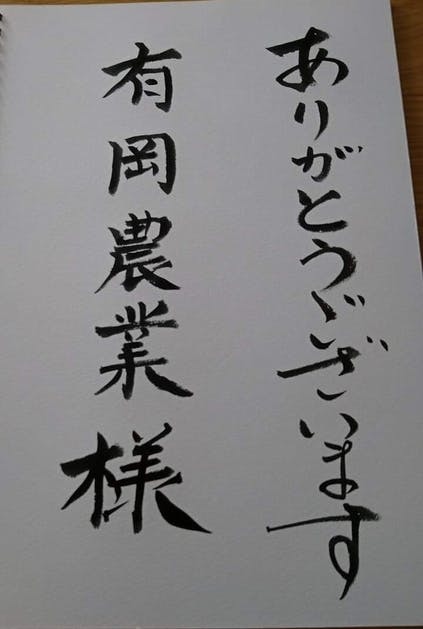 ありがとうございます
有岡農業様